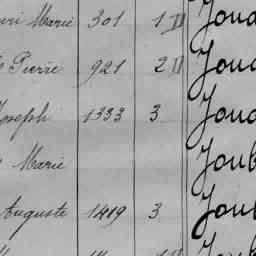 uri Marie 301 1 II Joua
s Pierre 921 2 II Joua
Joseph 1333 3 Joua
s Marie Joub
Auguste 1419 3 Joub